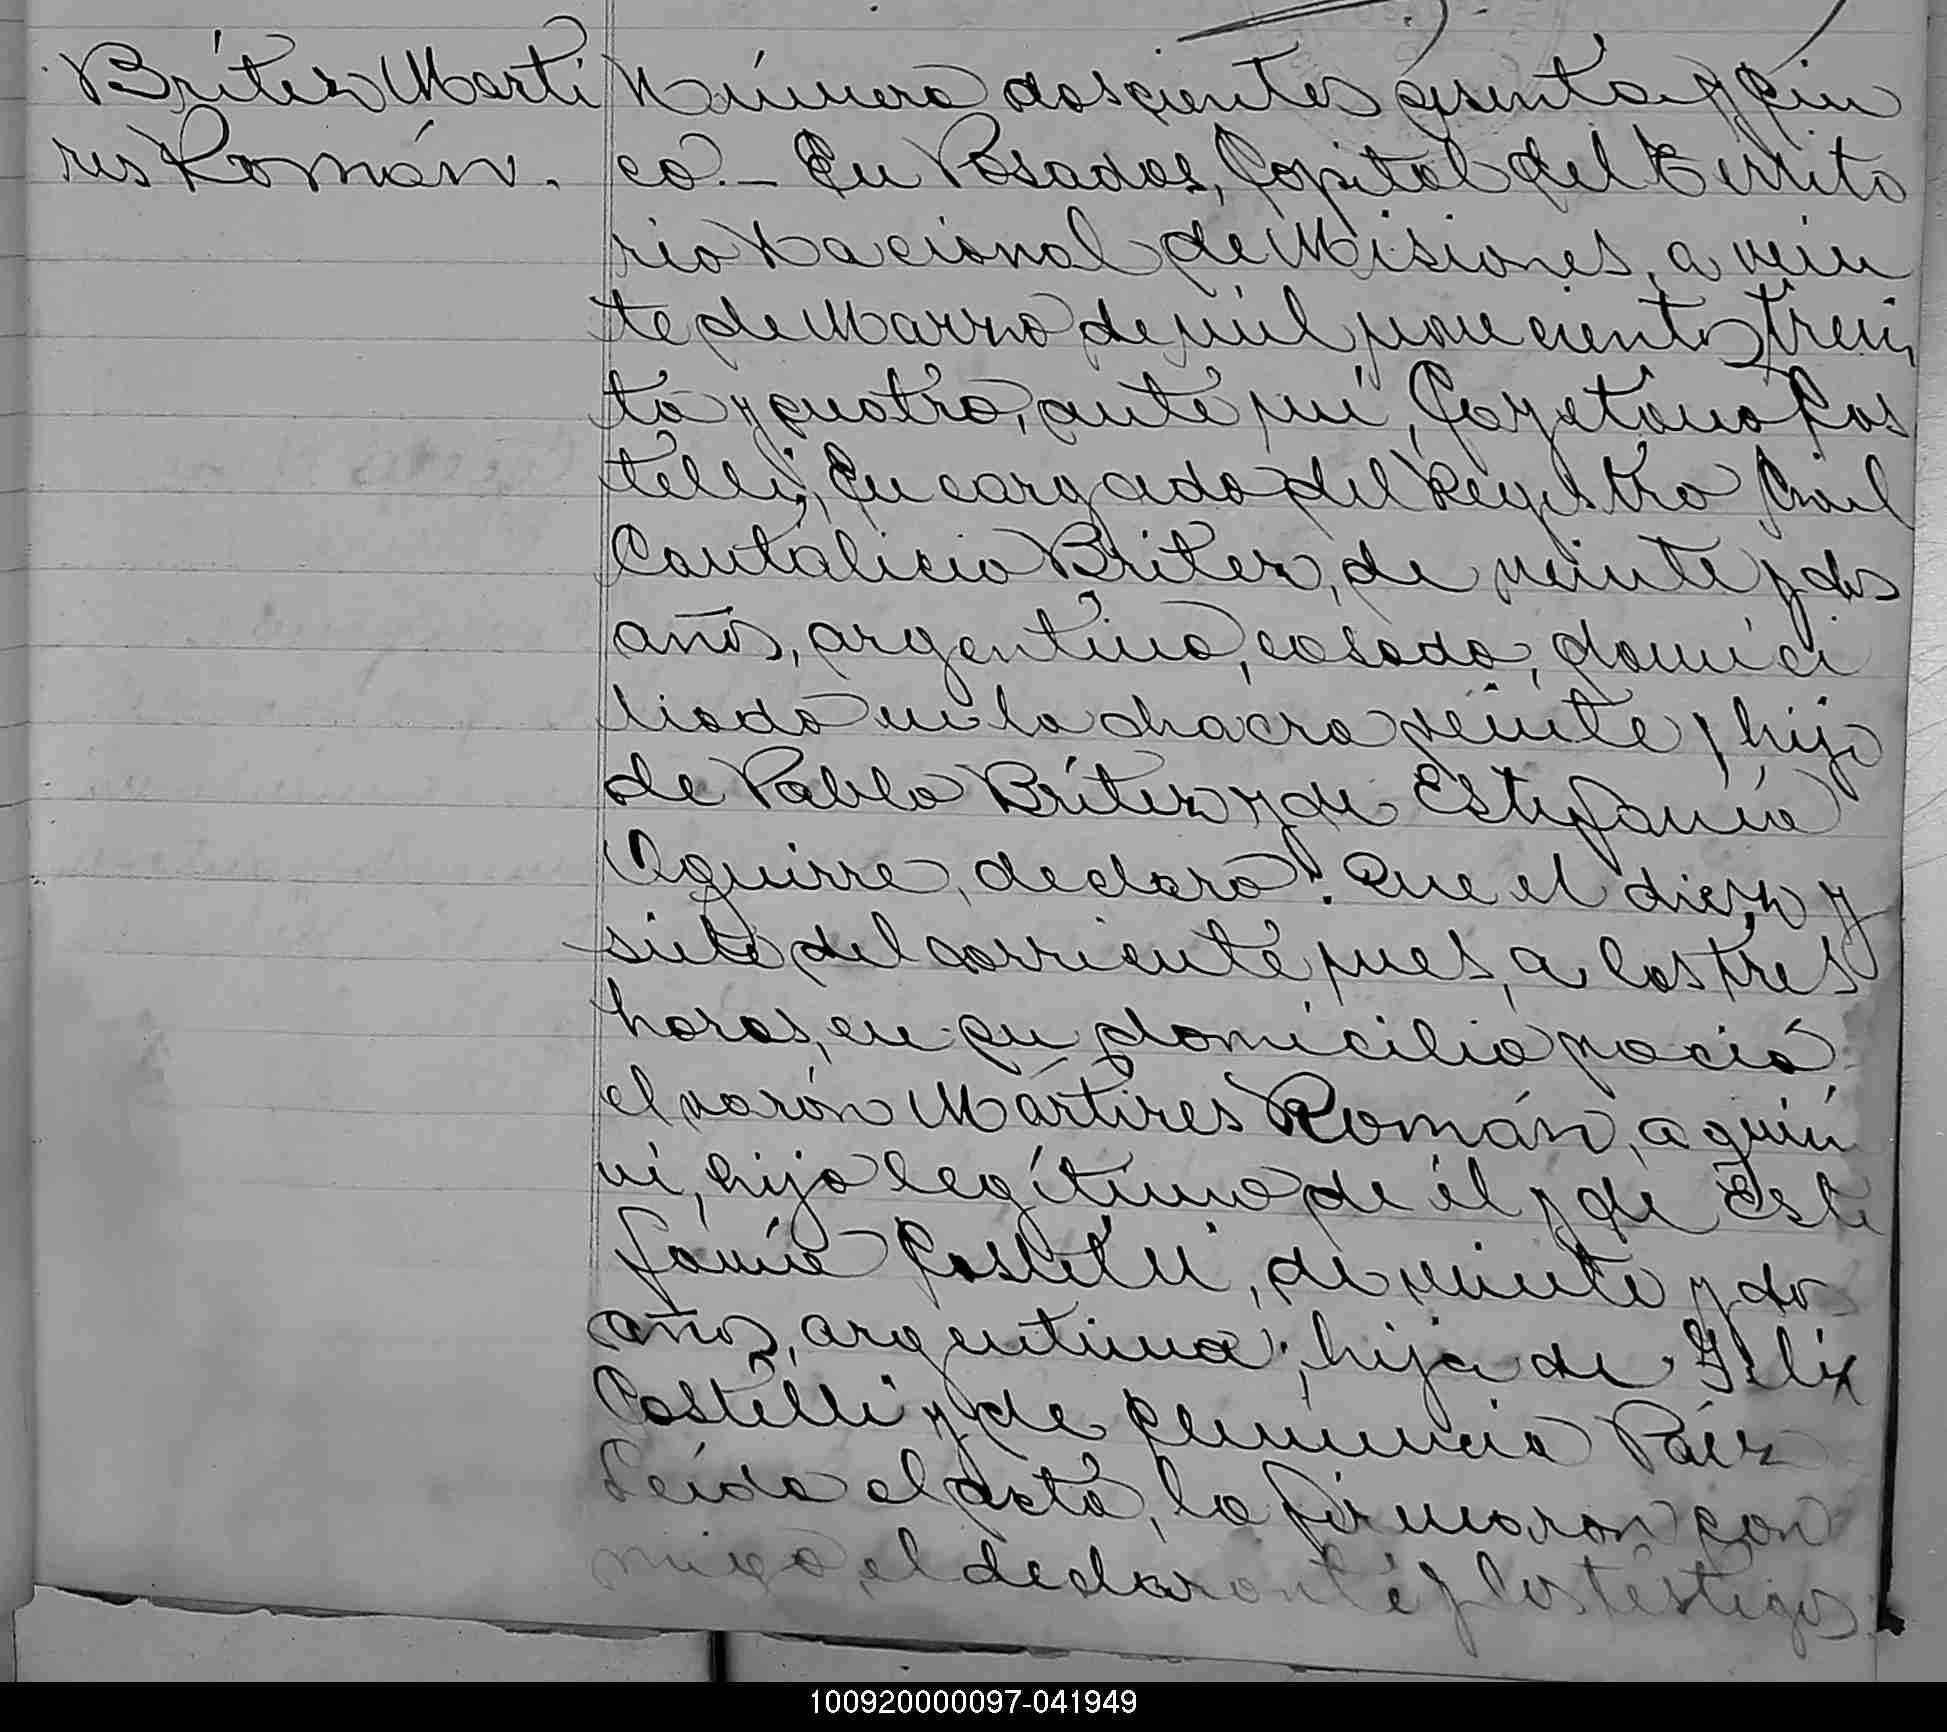 Brítez Márti
res Román.
Número doscientos sesenta y cin
co.- En Posadas, Capital del Territo
rio Nacional de Misiones, a vein
te de Marzo de mil novecientos trein
ta y cuatro, ante mí, Cayetano Cas
telli, Encargado del Registro Civil
Cantalicio Britez, de veinte y dos
años, argentino, casado, domici
liado en la chacra veinte, hijo
de Pablo Brítez y de Estefanía
Aguirre, declaró: Que el diez y
siete del corriente mes, a las tres
horas, en su domicilio nació
el varón Mártires Román, a quien
ví, hijo legítimo de él y de Este
fanía Castelli, de veinte y dos
años, argentina, hija de Felix
Castelli y de Páez
Leída el acta, la firmaron con
migo, el declarante y los testigos.
100920000097-041949